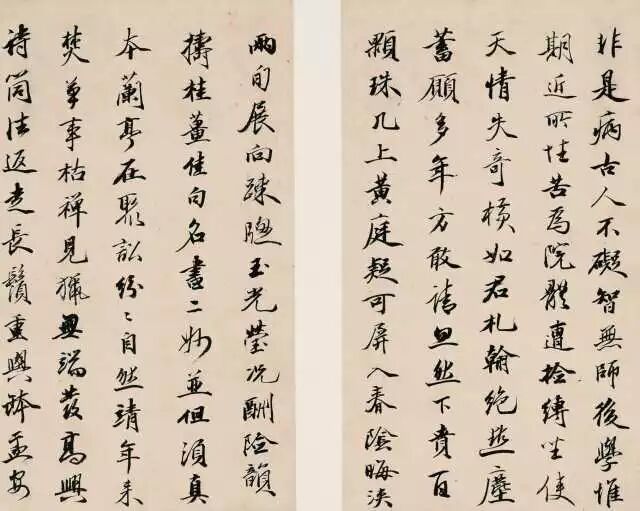 非是病古人不礙智無師後學惟
期近所性苦為院體遭拴縛坐使
天情失奇橫如君札翰絕塵
蓄願多年方敢請忽然下賁百
顆珠几上黃庭疑可屏入春陰晦淡
兩旬展向疎牕玉光瑩況酬險韻
擣桂薑佳句名畫二妙並但須真
本蘭亭在聚訟紛〻自然靖年來
焚草事枯禪見獵無端發高興
詩筒法返走長鬚重與缽盂安